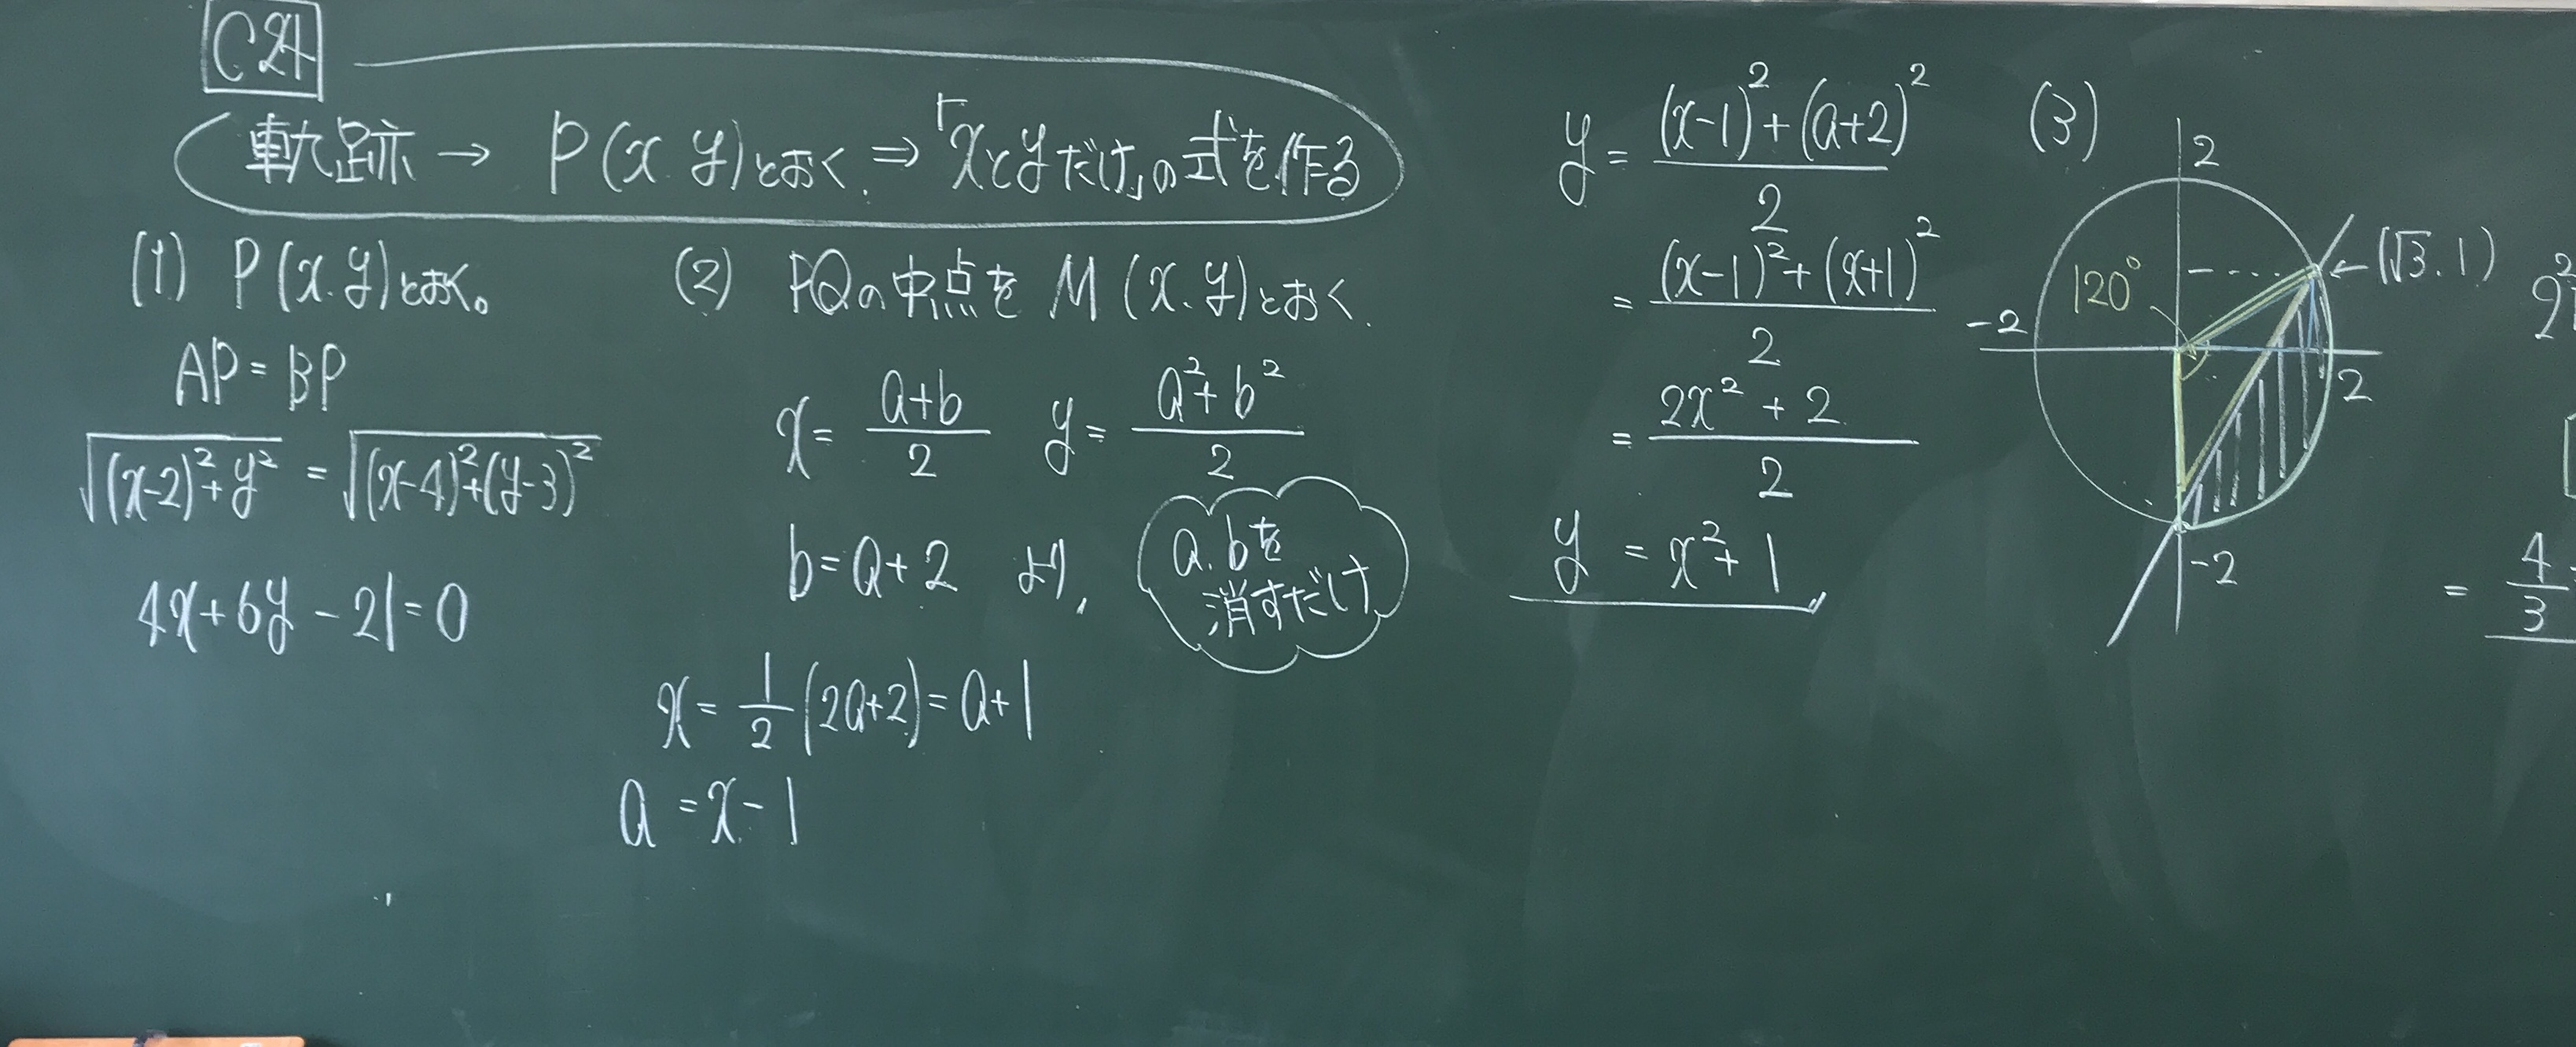 C24
軌跡 → P(x.y)とおく. ⇒「xとyだけ」の式を作る
(1) P(x.y)とおく。
AP=BP
√((x-2)²+y²) = √((x-4)²+(y-3)²)
4x+6y-21=0
(2) PQの中点を M(x.y)とおく.
x= (a+b)/2 y= (a²+b²)/2
b=a+2 より,
a.bを
消すだけ
x= 1/2 (2a+2)=a+1
a=x-1
y= ((x-1)²+(a+2)²)/2
= ((x-1)²+(x+1)²)/2
= (2x²+2)/2
y = x²+1
(3)
2
←(√3.1)
120°
-2
2
-2
= 4/3